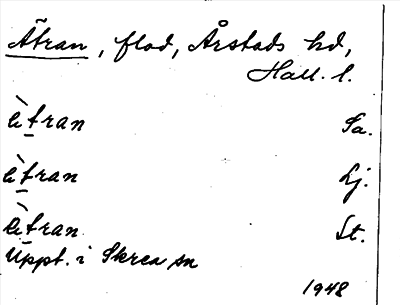 Ätran, flod, Årstads hd,
Hall. l.
ètran Sa.
ètran Lj.
ètran St.
Uppt. i Skrea sn
1948